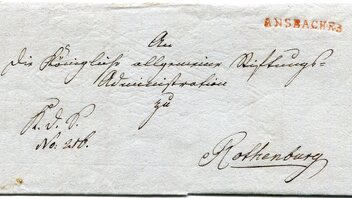 ANSBACH R3
An
die Königliche allgemeine Stiftungs-
Administration
zu
K. d. S.
No: 216.
Rothenburg